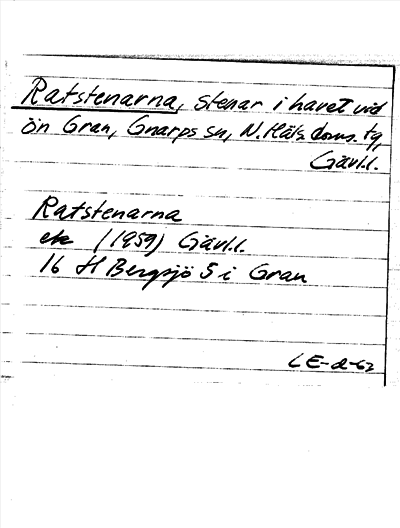 Ratstenarna, stenar i havet vid
ön Gran, Gnarps sn, N. Häls. doms. tg,
Gävl.l.
Ratstenarna
ek (1959) Gävl.l.
16 H Bergsjö 5 i Gran
LE-d-63